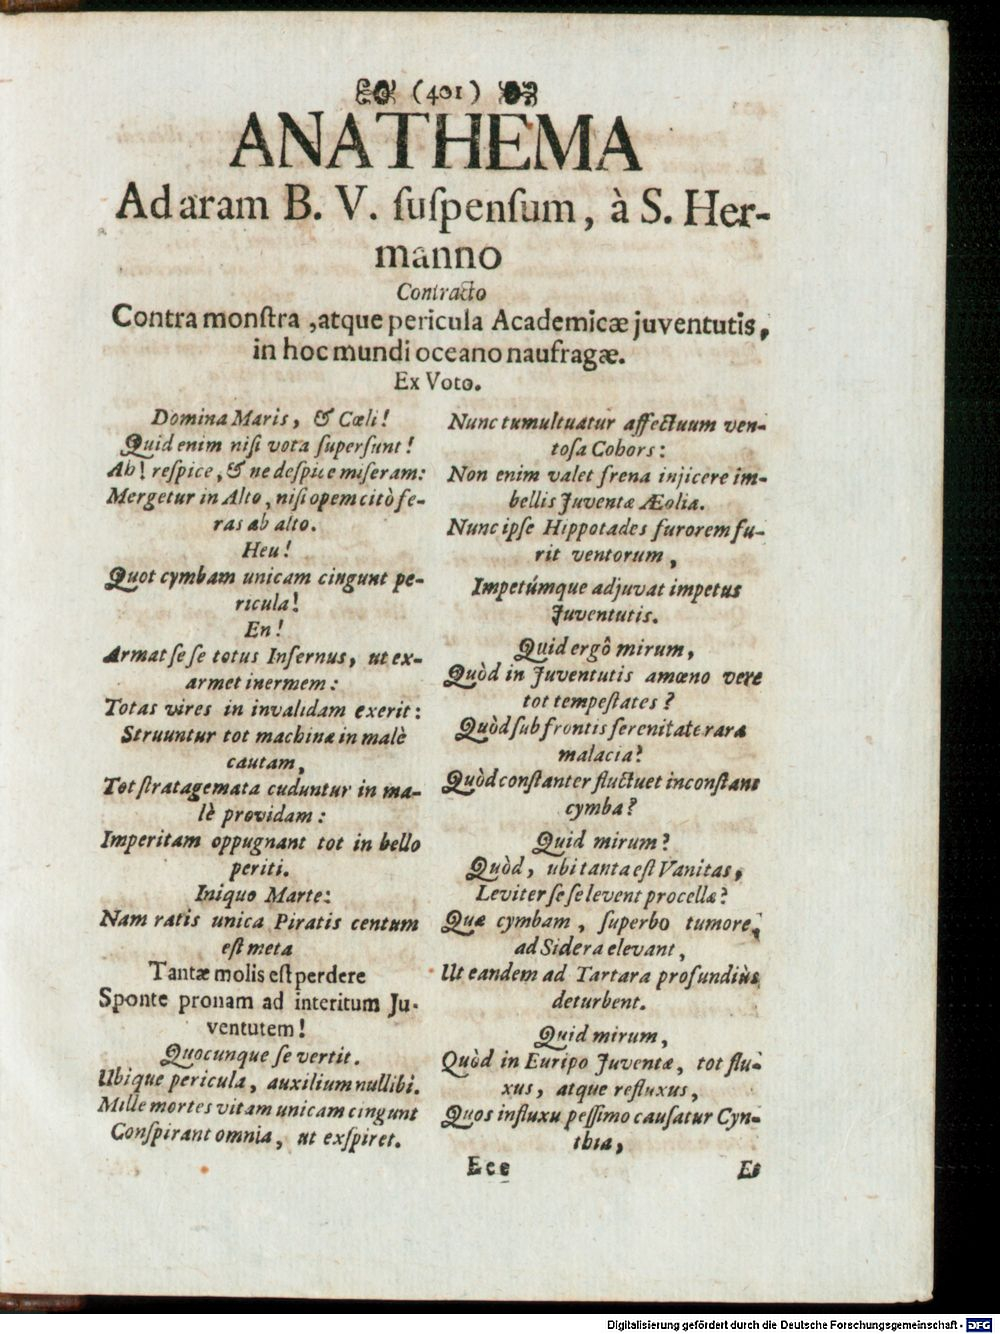 (401)
ANATHEMA
Ad aram B. V. ſuſpenſum, à S. Her-
manno
Contracto
Contra monſtra, atque pericula Academicæ juventutis,
in hoc mundi oceano naufragæ.
Ex Voto.
Domina Maris, & Cœli!
Quid enim niſi vota ſuperſunt!
Ah! reſpice, & ne deſpice miſeram:
Mergetur in Alto, niſi opem citò fe-
ras ab alto.
Heu!
Quot cymbam unicam cingunt pe-
ricula!
En!
Armat ſe ſe totus Infernus, ut ex-
armet inermem:
Totas vires in invalidam exerit:
Struuntur tot machinæ in malè
cautam,
Tot ſtratagemata cuduntur in ma-
lè providam:
Imperitam oppugnant tot in bello
periti.
Iniquo Marte:
Nam ratis unica Piratis centum
eſt meta
Tantæ molis eſt perdere
Sponte pronam ad interitum Ju-
ventutem!
Quocunque ſe vertit.
Ubique pericula, auxilium nullibi.
Mille mortes vitam unicam cingunt
Conſpirant omnia, ut exſpiret.
Nunc tumultuatur affectuum ven-
toſa Cohors:
Non enim valet frena injicere im-
bellis Juventæ Æolia.
Nunc ipſe Hippotades furorem fu-
rit ventorum,
Impetúmque adjuvat impetus
Juventutis.
Quid ergô mirum,
Quòd in Juventutis amœno vere
tot tempeſtates?
Quòd ſub frontis ſerenitate rara
malacia?
Quòd conſtanter fluctuet inconſtans
cymba?
Quid mirum?
Quòd, ubi tanta eſt Vanitas,
Leviter ſe ſe levent procellæ?
Quæ cymbam, ſuperbo tumore,
ad Sidera elevant,
Ut eandem ad Tartara profundiùs
deturbent.
Quid mirum,
Quòd in Euripo Juventæ, tot flu-
xus, atque refluxus,
Quos influxu peſſimo cauſatur Cyn-
thia,
Eee
Et
Digitalisierung gefördert durch die Deutsche Forschungsgemeinschaft - DFG